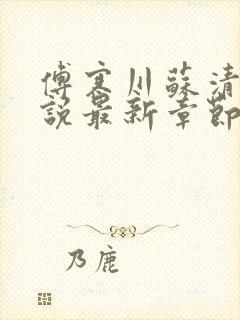 傅寒川蘇清
說最新章節
乃鹿